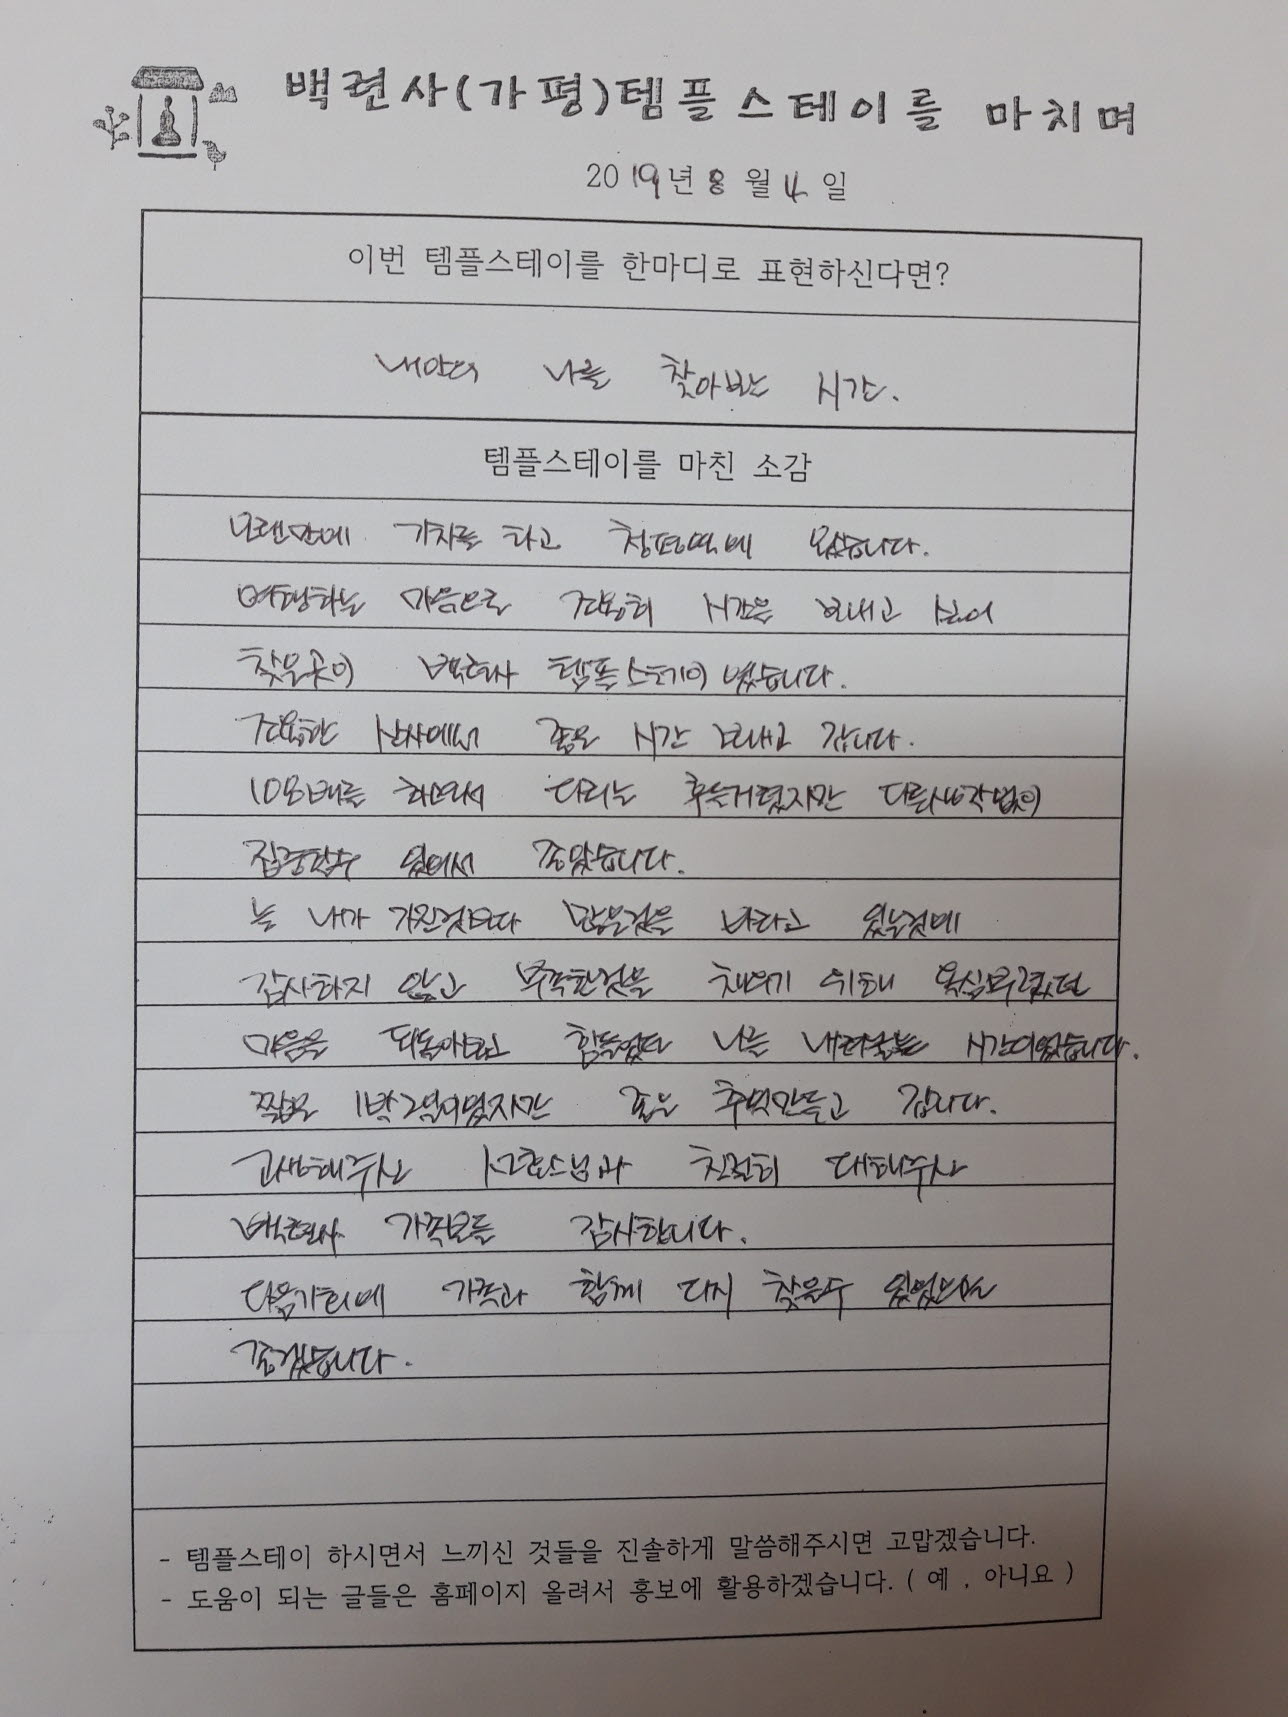 백련사(가평)템플스테이를 마치며
2019년 8월 4일
이번 템플스테이를 한마디로 표현하신다면?
내안의 나를 찾아보는 시간.
템플스테이를 마친 소감
오랜만에 기차를 타고 청평역에 왔습니다.
여행하는 마음으로 조용히 시간을 보내고 싶어
찾은곳이 백련사 템플스테이 였습니다.
조용한 산사에서 좋은 시간 보내고 갑니다.
108배를 하면서 다리는 후들거렸지만 다른생각없이
집중할수 있어서 좋았습니다.
늘 내가 가진것보다 많은것을 바라고 있는것에
감사하지 않고 부족한것을 채우기 위해 욕심부렸던
마음을 되돌아보고 힘들었던 나를 내려놓는 시간이었습니다.
짧은 1박2일이였지만 좋은 추억만들고 갑니다.
고생해주신 스님과 친절히 대해주신
백련사 가족모두들 감사합니다.
다음기회에 가족과 함께 다시 찾을수 있었으면
좋겠습니다.
- 템플스테이 하시면서 느끼신 것들을 진솔하게 말씀해주시면 고맙겠습니다.
- 도움이 되는 글들은 홈페이지 올려서 홍보에 활용하겠습니다. ( 예 , 아니요 )